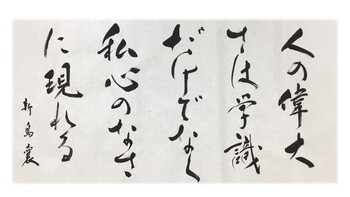 人の偉大
さは学識
だけでなく
私心のなさ
に現れる
新島襄